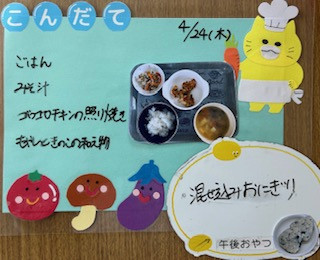 こんだて
4/24(木)
ごはん
みそ汁
コロコロチキンの照り焼き
もやしときのこの和え物
混ぜ込みおにぎり
午後おやつ